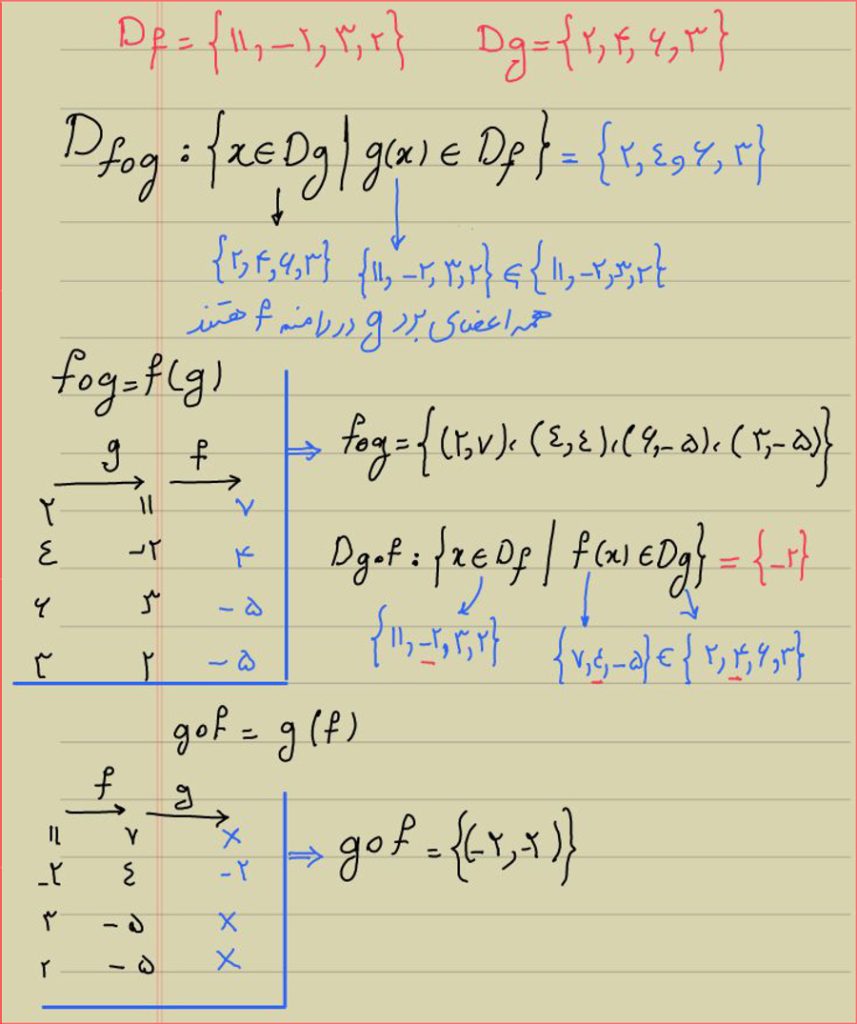 Df = {۱۱, -۲, ۳, ۲} Dg = {۲, ۴, ۶, ۳}
Dfog : {x ∈ Dg | g(x) ∈ Df} = {۲, ٤, ۶, ۳}
{۲, ۴, ۶, ۳} {۱۱, -۲, ۳, ۲} ∈ {۱۱, -۲, ۳, ۲}
همه اعضای برد g در دامنه f هستند
fog = f(g)
g f
۲ ۱۱ ۷
٤ -۲ ۴
۶ ۳ -۵
۳ ۲ -۵
⇒ fog = {(۲, ۷), (٤, ٤), (۶, -۵), (۳, -۵)}
Dgof : {x ∈ Df | f(x) ∈ Dg} = {-۲}
{۱۱, -۲, ۳, ۲} {۷, ٤, -۵} ∈ {۲, ۴, ۶, ۳}
gof = g(f)
f g
۱۱ ۷ ×
-۲ ٤ -۲
۳ -۵ ×
۲ -۵ ×
⇒ gof = {(-۲, -۲)}